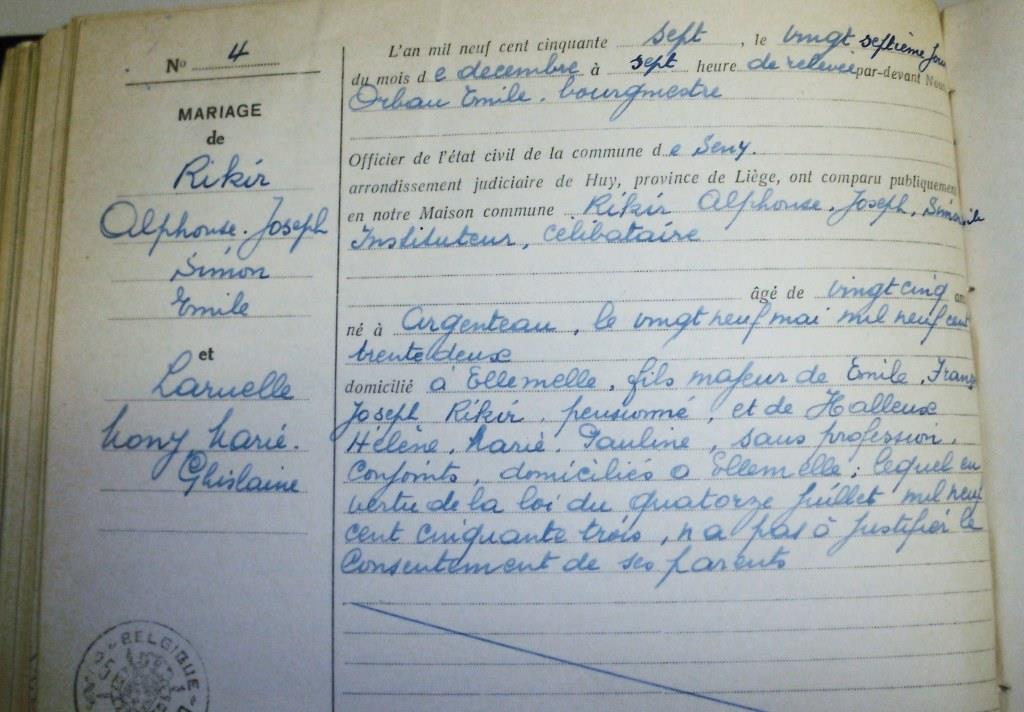 N° 4
MARIAGE
de
Rikir
Alphonse. Joseph
Simon
Emile
et
Laruelle
Mony Marie.
Ghislaine
BELGIQUE
L'an mil neuf cent cinquante sept, le vingt septième jour
du mois de decembre à sept heure de relevée par-devant Nous
Orban Emile. bourgmestre
Officier de l'état civil de la commune de Seny.
arrondissement judiciaire de Huy, province de Liège, ont comparu publiquement
en notre Maison commune Rikir Alphonse. Joseph, Simon
Instituteur, célibataire
âgé de vingt cinq an
né à Argenteau, le vingt neuf mai mil neuf cent
trente deux
domicilié à Ellemelle, fils majeur de Emile, Franz
Joseph Rikir, pensionné, et de Halleux
Hélène, Marie, Pauline, sans profession,
Conjoints, domiciliés a Ellemelle; lequel en
vertu de la loi du quatorze juillet mil neuf
cent cinquante trois, n a pas à justifier le
Consentement de ses parents